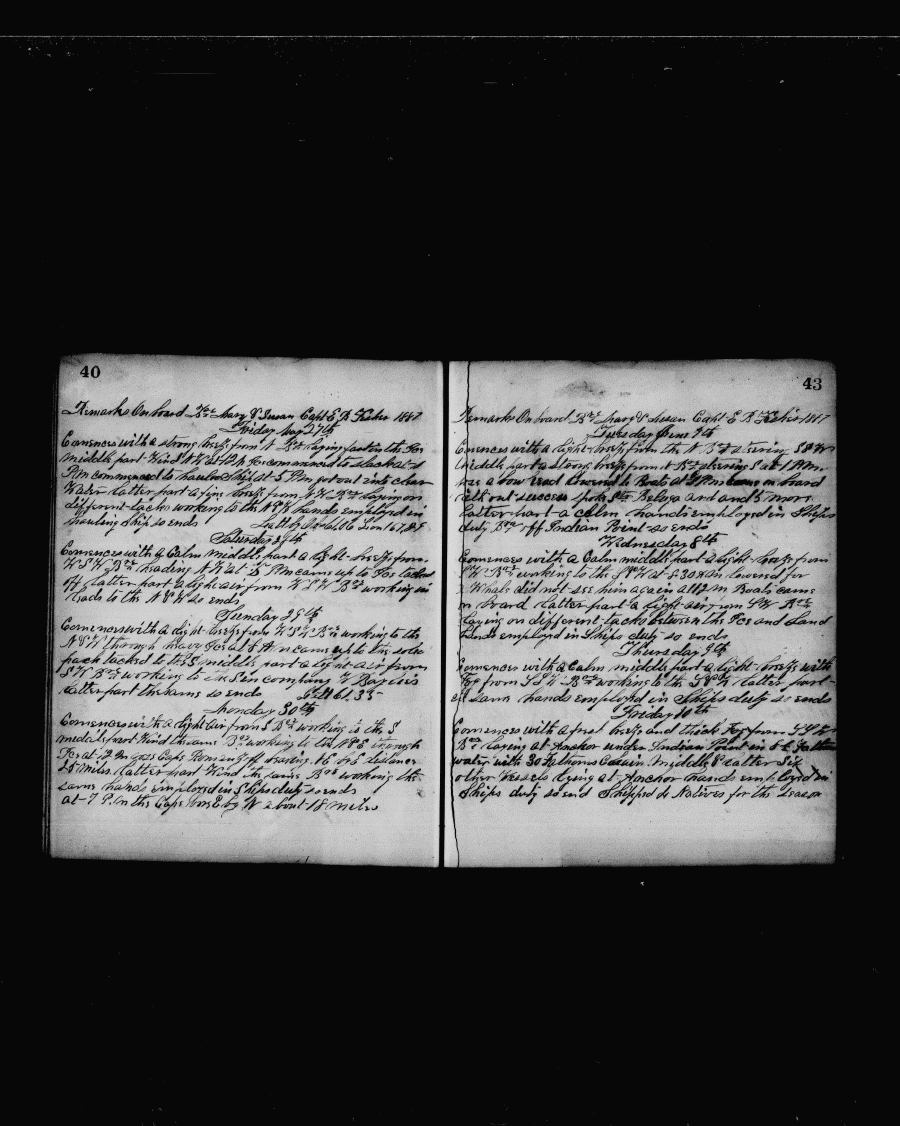 40
Remarks On board Bke Mary & Susan Capt E B Fisher 1887
Friday May 27th
Comences with a strong breeze from N Bke laying fast in the Ice
middle part Wind N W at 12 M Ice commenced to slack at 4
P.m commenced to haul Ship at 5 P.m got out into clear
Water latter part a fine breeze from N W Bke laying on
different tacks working to the N & W hands employed in
hauling Ship so ends Latt by Obs 61.06 Lon 167,
Saturday 28th
Comences with a Calm middle part a light breeze from
W S W Bke heading N W at P.m came up to Ice tacked
off latter part a light air from W S W Bke working in
leads to the N & W so ends
Sunday 29th
Comences with a light breeze from W S W Bke working to the
N & W through heavy Ice at 8 A m came up to the solid
pack tacked to the S middle part a light air from
S W Bke working to the S in company of Bayliss
latter part the same so ends Latt 61.35
Monday 30th
Comences with a light air from S Bke working to the S
middle part Wind the same Bke working to the N & E through
Ice at 12 M was Cape Romanzoff bearing N E by E distance
25 miles latter part Wind the same Bke working the
same hands employed in Ships duty so ends
at 7 P.m the Cape bore E by N about 18 miles
43
Remarks On board Bke Mary & Susan Capt E B Fisher 1887
Tuesday June 7th
Comences with a light breeze from the N Bke steering S & W
middle part a strong breeze from N Bke steering S at 1 P.m
saw a bow head lowered 4 Boats at P.m came on board
without success spoke Str Beluga and and 5 more
latter part a calm hands employed in Ships
duty Bke off Indian Point so ends
Wednesday 8th
Comences with a Calm middle part a light breeze from
S W Bke working to the S & W at 8-30 A m lowered for
Whale did not see him again at 12 M Boats came
on board latter part a light air from S W Bke
laying on different tacks between the Ice and Land
hands employed in Ships duty so ends
Thursday 9th
Comences with a Calm middle part a light breeze with
Fog from S S W Bke working to the S & W latter part
the same hands employed in Ships duty so ends
Friday 10th
Comences with a fresh breeze and thick Fog from S S W
Bke laying at Anchor under Indian Point in fathoms
water with 30 Fathoms Chain Middle & latter Six
other Vessels lying at Anchor hands employed in
Ships duty so end Shipped Natives for the Season